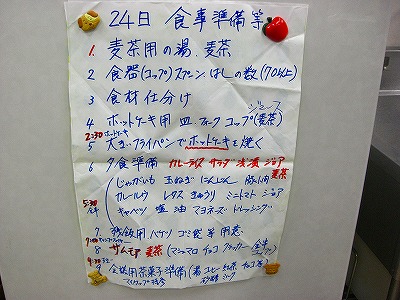 24日 食事準備等
1. 麦茶用の湯、麦茶
2 食器(コップ)スプーン、はしの数(70以上)
3 食材仕分け
ジュース
4 ホットケーキ用 皿 フォーク コップ(麦茶)
2:30 ホットケーキ
5 大きいフライパンでホットケーキを焼く
6 夕食準備 カレーライス サラダ 浅漬 ジョア
麦茶
じゃがいも 玉ねぎ にんじん 豚肉
カレールウ レタス きゅうり ミニトマト ジョア
5:30
キャベツ 塩 油 マヨネーズ ドレッシング
7. 残飯用バケツ ゴミ袋等用意
8 サムモア 麦茶 (マシュマロ チョコ クラッカー
9:30
9 茶菓子準備(湯 コーヒー 紅茶